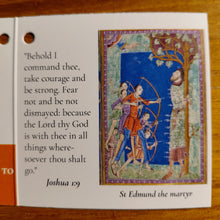 "Behold I
command thee,
take courage and
be strong. Fear
not and be not
dismayed: because
the Lord thy God
is with thee in all
things where-
soever thou shalt
go."
Joshua 1:9
TO
St Edmund the martyr